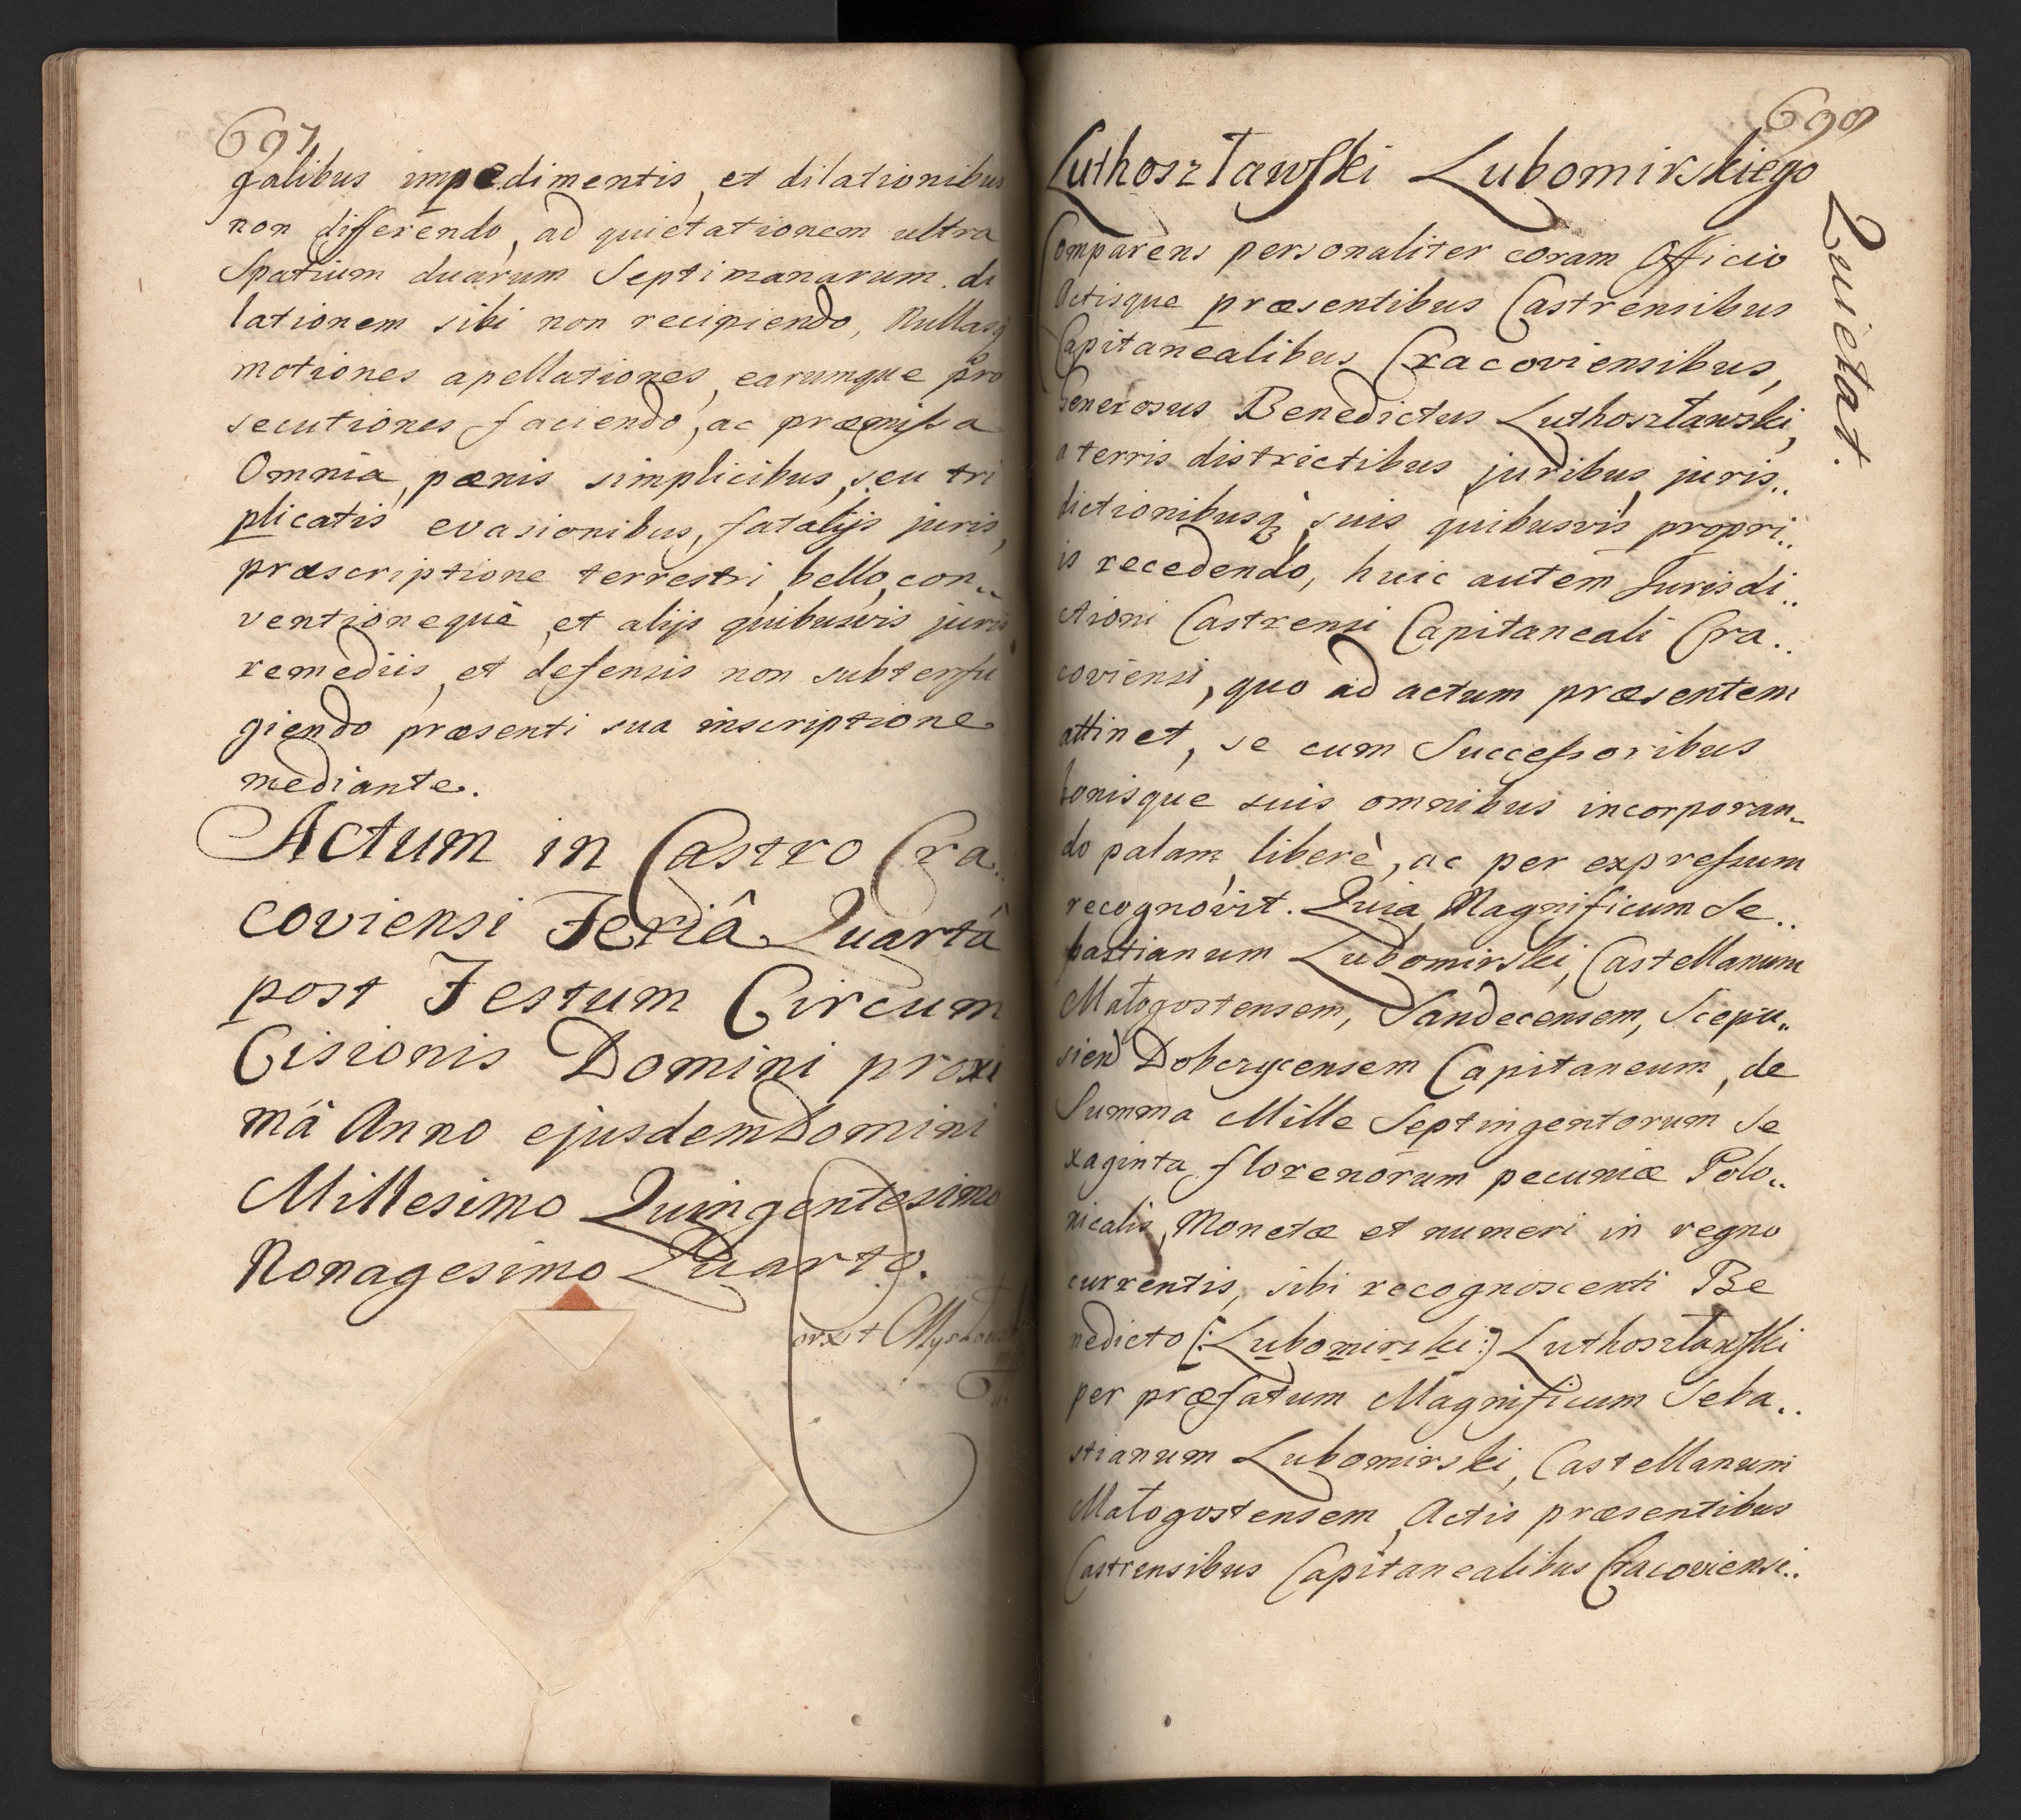 697
galibus impedimentis, et dilationibus
non differendo, ad quietationem ultra
Spatium duarum Septimanarum di
lationem sibi non recipiendo, Nullasq
motiones apellationes, earumque pro
secutiones faciendo, ac præmissa
Omnia, pœnis simplicibus, seu tri
plicatis evasionibus, fatalijs juris,
præscriptione terrestri, bello, con..
ventioneque, et alijs quibusvis juris
remediis, et defensis non subterfu
giendo præsenti sua inscriptione
mediante.
Actum in Castro Cra..
coviensi Feriâ Quartâ
post Festum Circum
Cisionis Domini proxi
mâ Anno ejusdem Domini
Millesimo Quingentesimo
Nonagesimo Quarto.
698
Luthoszławski Lubomirskiego
Quietat.
Comparens personaliter coram Officio
Actisque præsentibus Castrensibus
Capitanealibus Cracoviensibus,
Generosus Benedictus Luthoszławski,
a terris districtibus juribus juris..
dictionibusq suis quibusvis propri..
is recedendo, huic autem Jurisdi..
ctioni Castrensi Capitaneali Cra..
coviensi, quo ad actum præsentem
attinet, se cum Successoribus
bonisque suis omnibus incorporan..
do palam, liberè, ac per expressum
recognovit. Quia Magnificum Se..
bastianum Lubomirski, Castellanum
Małogostensem, Sandecensem, Scepu..
sien Dobczycensem Capitaneum, de
Summa Mille Septingentorum Se
xaginta florenorum pecuniæ Polo..
nicalis, Monetæ et numeri in regno
currentis, sibi recognoscenti Be
nedicto (: Lubomirski :) Luthoszławski
per præfatum Magnificum Seba..
stianum Lubomirski, Castellanum
Małogostensem, Actis præsentibus
Castrensibus Capitanealibus Cracoviensi..